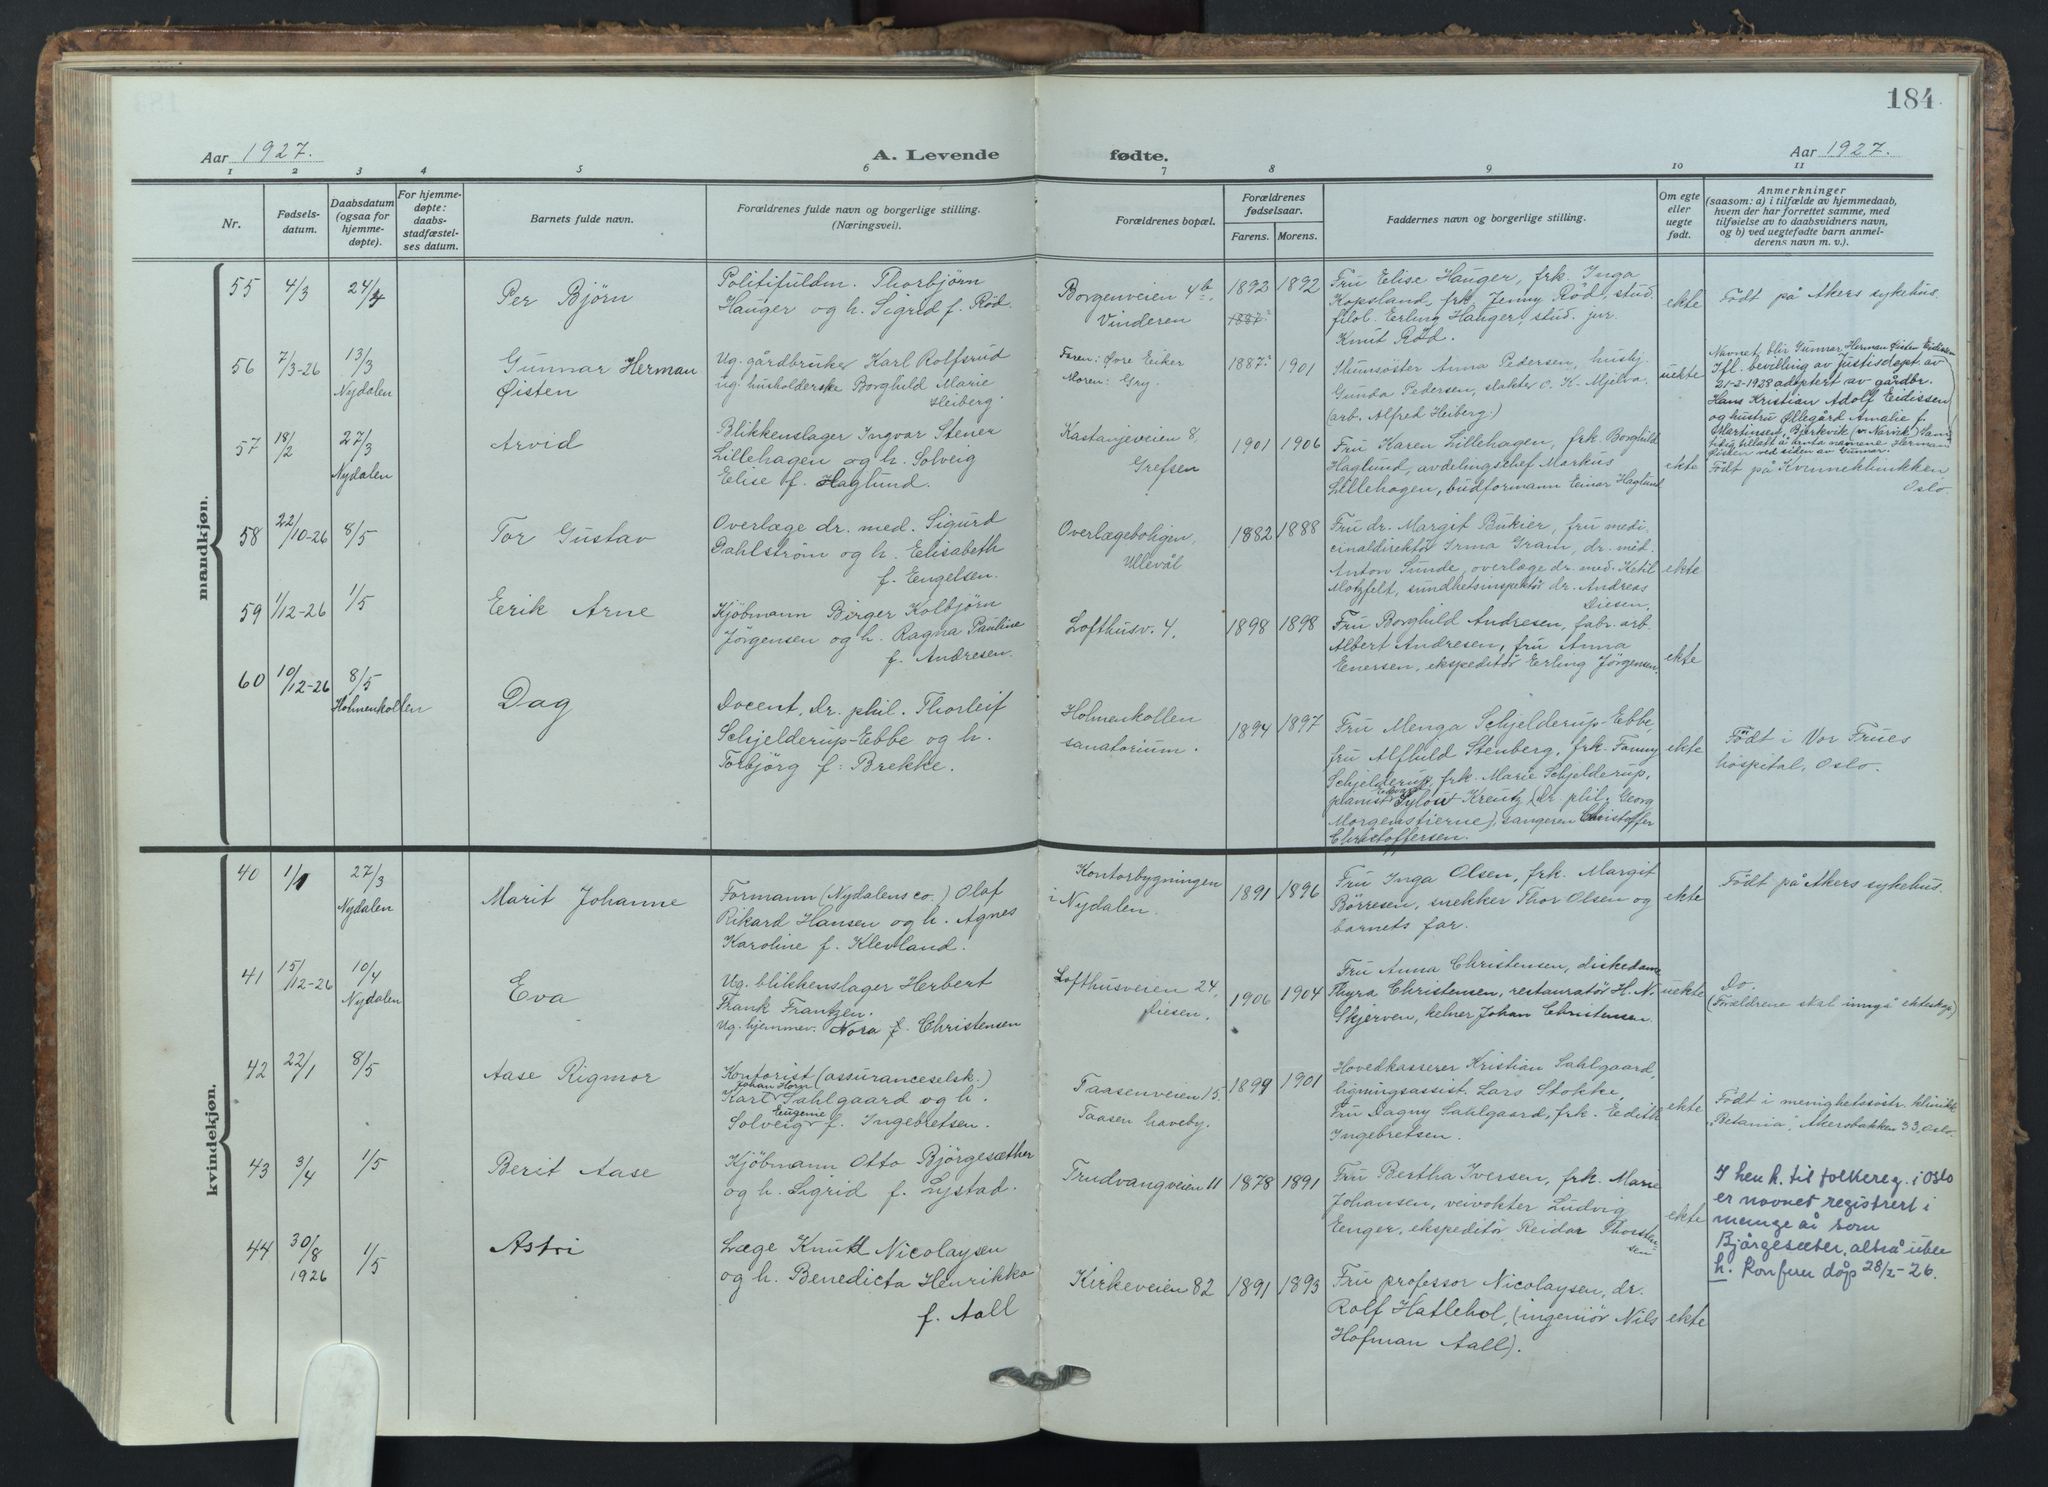 184
Aar 1927.
A. Levende
fødte.
Aar 1927.
1 2 3 4 5 6 7 8 9 10 11
Nr.
Fødsels-
datum.
Daabsdatum
(ogsaa for
hjemme-
døpte).
For hjemme-
døpte:
daabs-
stadfæstel-
ses datum.
Barnets fulde navn.
Forældrenes fulde navn og borgerlige stilling.
(Næringsvei).
Forældrenes bopæl.
Forældrenes
fødselsaar.
Farens. Morens.
Faddernes navn og borgerlige stilling.
Om egte
eller
uegte
født.
Anmerkninger
(saasom: a) i tilfælde av hjemmedaab,
hvem der har forrettet samme, med
tilføielse av to daabsvidners navn,
og b) ved uegtefødte barn anmel-
derens navn m. v.).
mandkjøn.
55 4/3 24/4
Per Bjørn
Politifuldm. Thorbjörn
Hauger og h. Sigrid f. Röd.
Borgenveien 4b,
Vinderen
1892 1892
1887
Fru Elise Hauger, frk. Inga
Kopsland, frk. Jenny Röd, stud.
filol. Erling Hauger, stud. jur.
Knut Röd.
ekte
Födt på Akers sykehus.
56 7/3-26 13/3
Nydalen
Gunnar Herman
Øisten
Ug. gårdbruker Karl Rolfsrud
ug. husholderske Borghild Marie
Heiberg.
Faren: Øvre Eiker
Moren: Gry.
1887 1901
Anna Pedersen, hushj.
Gunda Pedersen, slakter O. K. Mjelva,
(arb. Alfred Heiberg.)
uekte
Navnet blir Gunnar Herman Øisten Eidissen
Ifl. bevilling av Justisdept. av
21-2-1928 adoptert av gårdbr.
Hans Kristian Adolf Eidissen
og hustru Øllegård Amalie f.
Martinsen, Bjerkvik (v. Narvik) Sam-
tidig tillatt å anta navnene Herman
Øisten ved siden av Gunnar.
57 18/2 27/3
Nydalen
Arvid
Blikkenslager Ingvar Stener
Lillehagen og h. Solveig
Elise f. Haglund.
Kastanjeveien 8,
Grefsen
1901 1906
Fru Karen Lillehagen, frk. Borghild
Haglund, avdelingschef Markus
Lillehagen, budformann Einar Haglund
ekte
Födt på Kvinneklinikken
Oslo.
58 22/10-26 8/5
Tor Gustav
Overlæge dr. med. Sigurd
Dahlström og h. Elisabeth
f. Engelsen.
Overlægeboligen,
Ullevål
1882 1888
Fru dr. Margit Bukier, fru medi-
cinaldirektör Irma Gram, dr. med.
Anton Sunde, overlæge dr. med. Ketil
Motzfelt, sundhetsinspektör dr. Andreas
Diesen.
ekte
59 1/12-26 1/5
Eerik Arne
Kjöbmann Birger Kolbjörn
Jörgensen og h. Ragna Pauline
f. Andresen.
Lofthusv. 4.
1898 1898
Fru Borghild Andresen, fabr. arb.
Albert Andresen, fru Anna
Enersen, ekspeditör Erling Jörgensen.
ekte
60 10/12-26 8/5
Holmenkollen
Dag
Docent, Dr. phil. Thorleif
Schjelderup-Ebbe og h.
Torbjörg f. Brekke.
Holmenkollen
sanatorium.
1894 1897
Fru Menga Schjelderup-Ebbe,
fru Alfhild Stenberg, frk. Fanny
Schjelderup, frk. Marie Schjelderup,
pianist Sylou-Kreutz (Dr. phil. Georg
Morgenstierne), sangeren Christoffer
Christoffersen.
ekte
Födt i Vor Frues
hospital, Oslo.
kvindekjøn.
40 1/1 27/3
Nydalen
Marit Johanne
Formann (Nydalens co.) Olaf
Rikard Hansen og h. Agnes
Karoline f. Klevland.
Kontorbygningen
i Nydalen.
1891 1896
Fru Inga Olsen, frk. Margit
Börresen, snekker Thor Olsen og
barnets far.
ekte
Födt på Akers sykehus.
41 15/12-26 10/4
Nydalen
Eva
Ug. blikkenslager Herbert
Frank Frantzen.
Ug. hjemmev. Nora f. Christensen
Lofthusveien 24,
Disen.
1906 1904
Fru Anna Christensen, diskedame
Thyra Christensen, restauratör H. N.
Skjerven, kelner Johan Christensen.
uekte
Do.
(Forældrene skal inngå ekteskap)
42 22/1 8/5
Aase Rigmor
Kontorist (assuranceselsk.)
Johan Horn
Karl Sahlgaard og h.
Eugenie
Solveig f. Ingebretsen.
Taasenveien 15,
Taasen haveby.
1899 1901
Hovedkasserer Kristian Sahlgaard,
ligningsassist. Lars Stokke,
Fru Dagny Sahlgaard, frk. Edith
Ingebretsen.
ekte
Födt i menighetssöstr. klinikk
"Betania", Akersbakken 33, Oslo.
43 3/4 1/5
Berit Aase
Kjöbmann Otto Björgesæther
og h. Sigrid f. Lystad.
Trudvangveien 11
1878 1891
Fru Bertha Iversen, frk. Marie
Johansen, veivokter Ludvig
Eenger, ekspeditör Reidar Thorsten-
sen
ekte
I hen h. til folkereg. i Oslo
er navnet registrert i
mange år som
Bjørgesæter, altså uten
h. Konferer dåp 28/2-26.
44 30/8
1926 1/5
Astri
Læge Knut Nicolaysen
og h. Benedicta Henrikka
f. Aall
Kirkeveien 82
1891 1893
Fru professor Nicolaysen, dr.
Rolf Hatlehol, (ingeniör Nils
Hofman Aall).
ekte